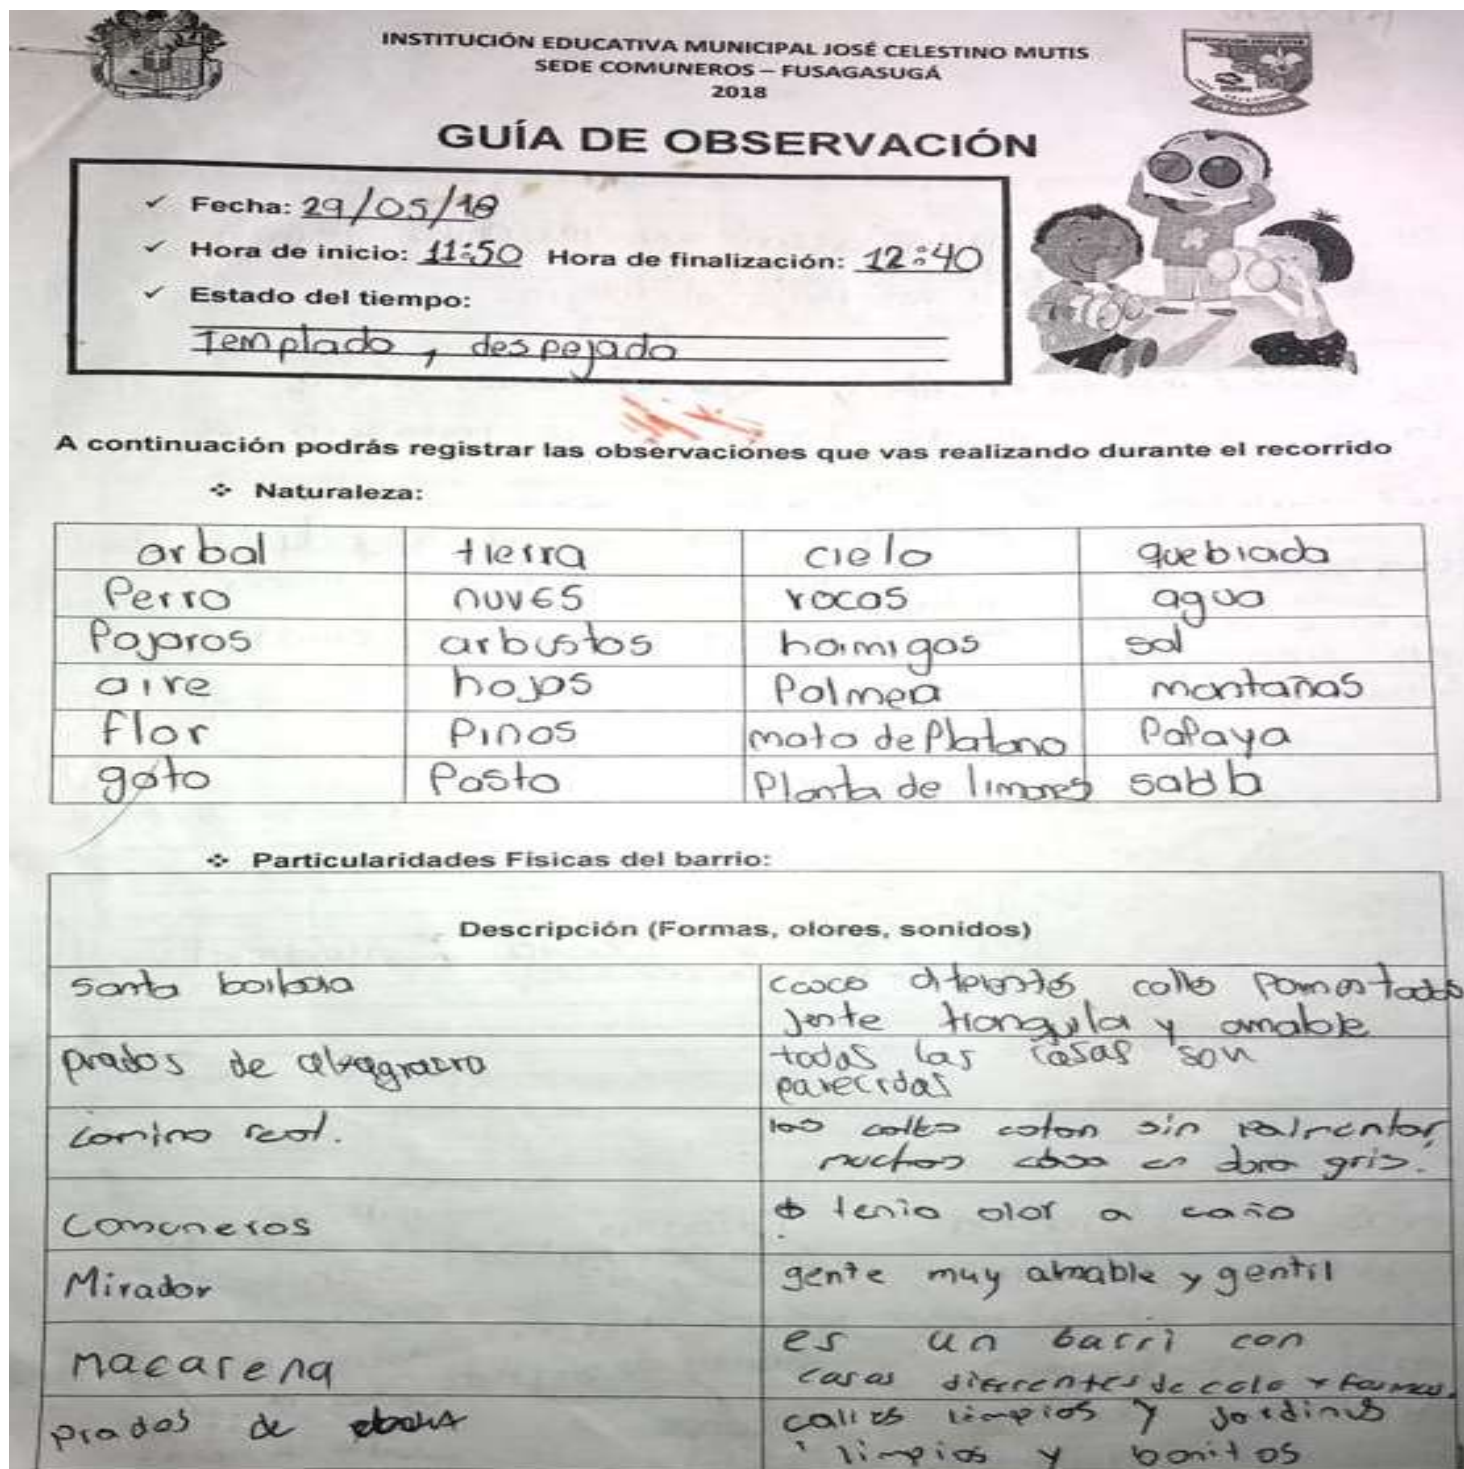 INSTITUCIÓN EDUCATIVA MUNICIPAL JOSÉ CELESTINO MUTIS
SEDE COMUNEROS – FUSAGASUGÁ
2018
GUÍA DE OBSERVACIÓN
✓ Fecha: 29/05/18
✓ Hora de inicio: 11:50 Hora de finalización: 12:40
✓ Estado del tiempo:
Templado, despejado
A continuación podrás registrar las observaciones que vas realizando durante el recorrido
❖ Naturaleza:
arbol tierra cielo quebrada
Perro nuves rocas agua
Pajaros arbustos hormigas sol
aire hojas Palmera montañas
flor Pinos mata de Platano Papaya
gato Pasto Planta de limones
❖ Particularidades Físicas del barrio:
Descripción (Formas, olores, sonidos)
santa barbara
calles
jente y amable
prados de todas las casas son
parecidas
camino real. las calles sin
muchas en obra gris.
Comuneros tenia olor a caño
Mirador gente muy amable y gentil
Macarena es un barri con
casas diferentes de colo y formas.
Prados de calles limpios y jardines
limpios y bonitos